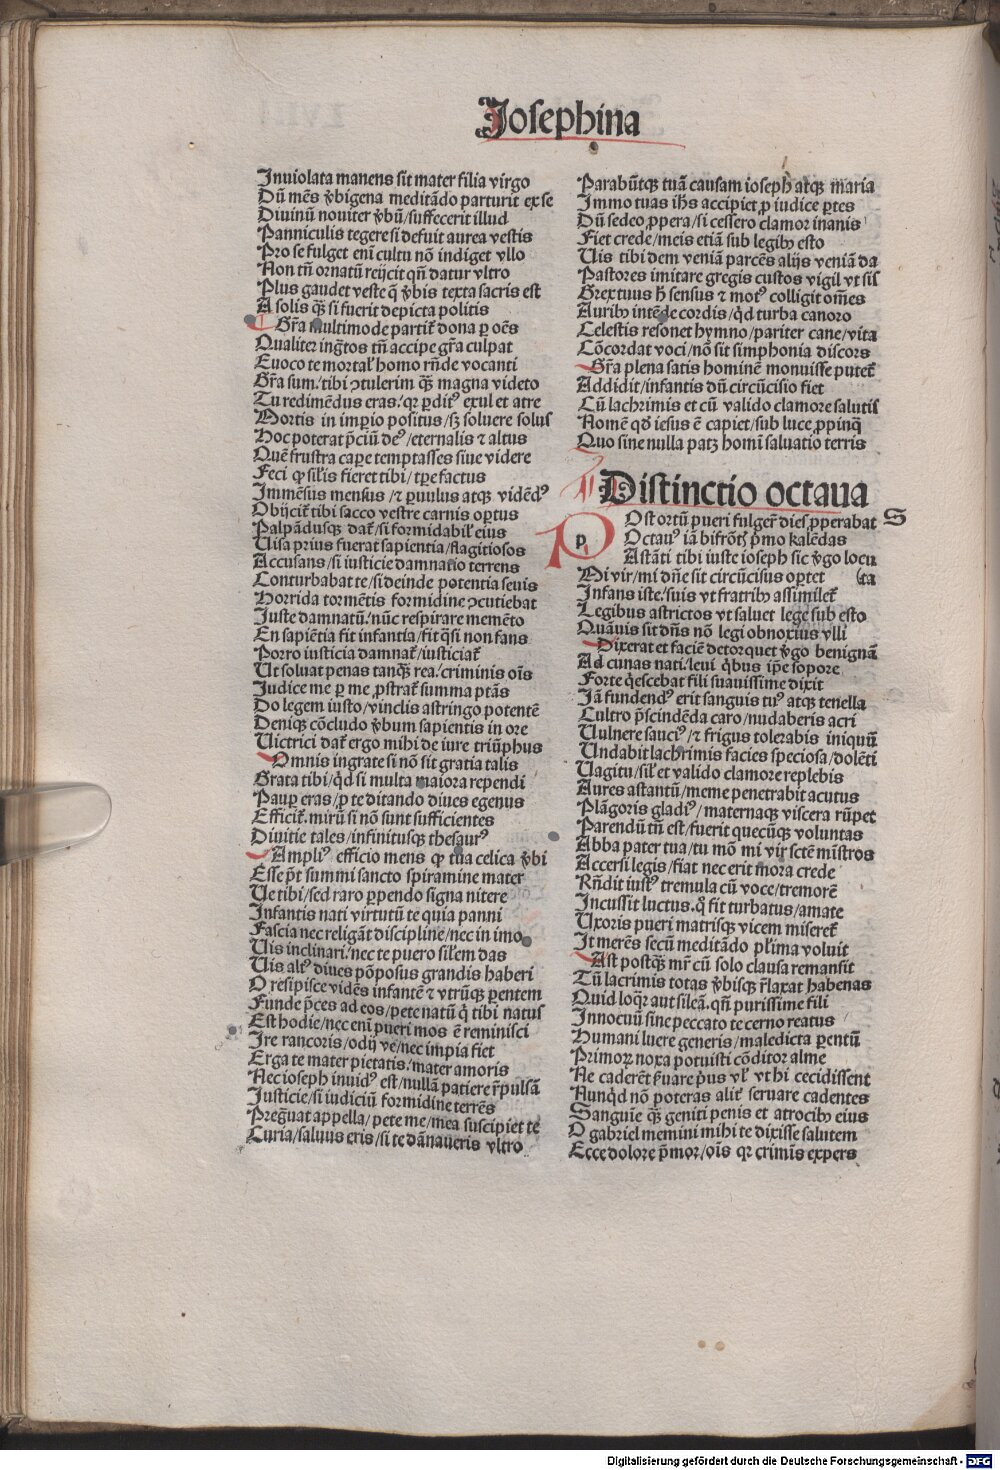 Josephina
Inuiolata manens sit mater filia virgo
Dũ mẽs v̾bigena meditãdo parturit ex se
Diuinũ nouiter v̾bũ/suffecerit illud
Panniculis tegere si defuit aurea vestis
Pro se fulget eni cultu nõ indiget vllo
Non tñ ornatũ reijcit qñ datur vltro
Plus gaudet veste q̃ v̾bis texta sacris est
A solis qꝫ si fuerit depicta politis
Gr̃a multimode partit̃ dona ꝑ oẽs
Qualiter ingr̃tos tñ accipe gr̃a culpat
Euoco te mortal' homo rñde vocanti
Gr̃a sum/tibi ꝯtulerim qꝫ magna videto
Tu redimẽdus eras/qr ꝑditꝰ exul et atre
Mortis in imꝑio positus/sꝫ soluere solus
Hoc poterat p̃ciũ deꝰ/eternalis ⁊ altus
Quẽ frustra capere temptasses siue videre
Feci ꝙ sil'is fieret tibi/tꝑe factus
Immẽsus mensus/⁊ ꝑuulus atqꝫ vidẽdꝰ
Obijcit̃ tibi sacco vestre carnis oꝑtus
Palpãdusqꝫ dat̃/si formidabil' eius
Uisa prius fuerat sapientia/flagitiosos
Accusans/si iusticie damnatio terrens
Conturbabat te/si deinde potentia seuis
Horrida tormẽtis formidine ꝯcutiebat
Juste damnatũ/nũc respirare memẽto
En sapiẽtia fit infantia/fit q̃si non fans
Porro iusticia damnat̃/iusticiat̃
Ut soluat penas tanqꝫ rea/criminis oĩs
Judice me ꝑ me ꝓstrat̃ summa ptãs
Do legem iusto/vinclis astringo potentẽ
Deniqꝫ cõcludo v̾bum sapientis in ore
Uictrici dat̃ ergo mihi de iure triũphus
Omnis ingrate si nõ sit gratia talis
Grata tibi/qd̃ si multa maiora rependi
Pauꝑ eras/ꝑ te ditando diues egenus
Efficit̃ mirũ si nõ sunt sufficientes
Diuitie tales/infinitusqꝫ thesaurꝰ
Ampliꝰ efficio mens ꝙ tua celica v̾bi
Esse pt̃ summi sancto spiramine mater
Ue tibi/sed raro ꝑpendo signa nitere
Infantis nati virtutũ te quia panni
Fascia nec religãt discipline/nec in imo
Uis inclinari/nec te puero sil'em das
Uis altꝰ diues põposus grandis haberi
O resipisce vidẽs infantẽ ⁊ vtrũqꝫ ꝑentem
Funde p̃ces ad eos/pete natũ q̃ tibi natus
Est hodie/nec eni pueri mos ẽ reminisci
Ire rancoris/odij ve/nec impia fiet
Erga te mater pietatis/mater amoris
Nec ioseph inuidꝰ est/nullã patiere r̃pulsã
Justicie/si iudiciũ formidine terrẽs
Preg̃uat appella/pete me/mea suscipiet te
Curia/saluus eris/si te dãnaueris vltro
Parabũtqꝫ tuã causam ioseph atqꝫ maria
Immo tuas ihs accipiet ꝓ iudice ꝑtes
Dũ sedeo ꝓpera/si cessero clamor inanis
Fiet crede/meis etiã sub legibꝫ esto
Uis tibi dem veniã parcẽs alijs veniã da
Pastores imitare gregis custos vigil vt sis
Grex tuus h̃ sensus ⁊ motꝰ colligit oẽs
Auribꝫ intẽde cordis/qd̃ turba canoro
Celestis resonet hymno/pariter cane/vita
Cõcordat voci/nõ sit simphonia discors
Gr̃a plena satis hominẽ monuisse putet̃
Addidit/infantis dũ circũcisio fiet
Cũ lachrimis et cũ valido clamore salutis
Nomẽ qd̃ iesus ẽ capiet/sub luce ꝓpinq̃
Quo sine nulla patꝫ homĩ saluatio terris
Distinctio octaua
S
p
Ost ortũ pueri fulger̃ dies ꝓperabat
Octauꝰ iã bifrõtꝭ p̃mo kalẽdas
Astãti tibi iuste ioseph sic v̾go locu
(ta
Mi vir/mi dñe sit circũcisus oꝑtet
Infans iste/suis vt fratribꝫ assimilet̃
Legibus astrictos vt saluet lege sub esto
Quãuis sit dñs nõ legi obnoxius vlli
Dixerat et faciẽ detorquet v̾go benignã
Ad cunas nati/leui q̃bus ip̃e sopore
Forte q̃escebat fili suauissime dixit
Jã fundendꝰ erit sanguis tuꝰ atqꝫ tenella
Cultro p̃scindẽda caro/nudaberis acri
Uulnere sauciꝰ/⁊ frigus tolerabis iniquũ
Undabit lachrimis facies speciosa/dolẽti
Uagitu/sil' et valido clamore replebis
Aures astantũ/meme penetrabit acutus
Plãgoris gladiꝰ/maternaqꝫ viscera rũpet
Parendũ tñ est/fuerit quecũqꝫ voluntas
Abba pater tua/tu mõ mi vir sctẽ mĩstros
Accersi legis/fiat nec erit mora crede
Rñdit iustꝰ tremula cũ voce/tremorẽ
Incussit luctus.q̃ fit turbatus/amate
Uxoris pueri matrisqꝫ vicem miseret̃
It merẽs secũ meditãdo pl'ima voluit
Ast postqꝫ mr̃ cũ solo clausa remansit
Tũ lacrimis totas v̾bisqꝫ r̃laxat habenas
Quid loqr̃ aut sileã.qñ purissime fili
Innocuũ sine peccato te cerno reatus
Humani luere generis/maledicta ꝑentũ
Primoꝝ noxa potuisti cõditor alme
Ne caderẽt ẜuare p̃us vl' vt hi cecidissent
Nunqd̃ nõ poteras alit̃ seruare cadentes
Sanguĩe qꝫ geniti penis et atrocibꝫ eius
O gabriel memini mihi te dixisse salutem
Ecce dolore p̃mor/oĩs qr crimĩs expers
Digitalisierung gefördert durch die Deutsche Forschungsgemeinschaft - DFG